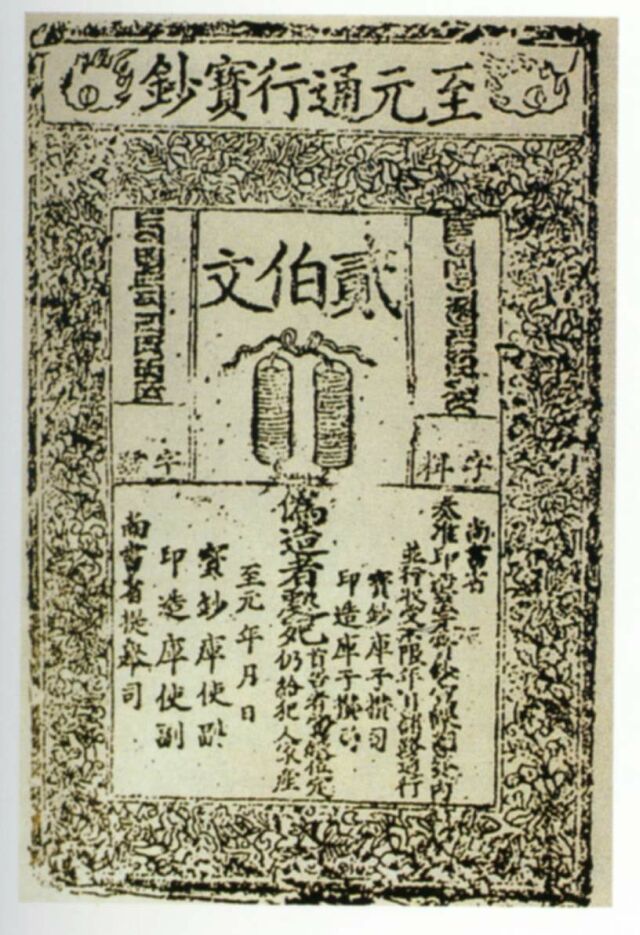 至元通行寶鈔
貳伯文
字料
字號
尚書省
奏准印造至元寶鈔宣課差役內
並行收受不限年月諸路通行
寶鈔庫子攢司
印造庫子攢司
偽造者處死
首告者賞銀伍定
仍給犯人家產
至元年月日
寶鈔庫使副
印造庫使副
尚書省提舉司